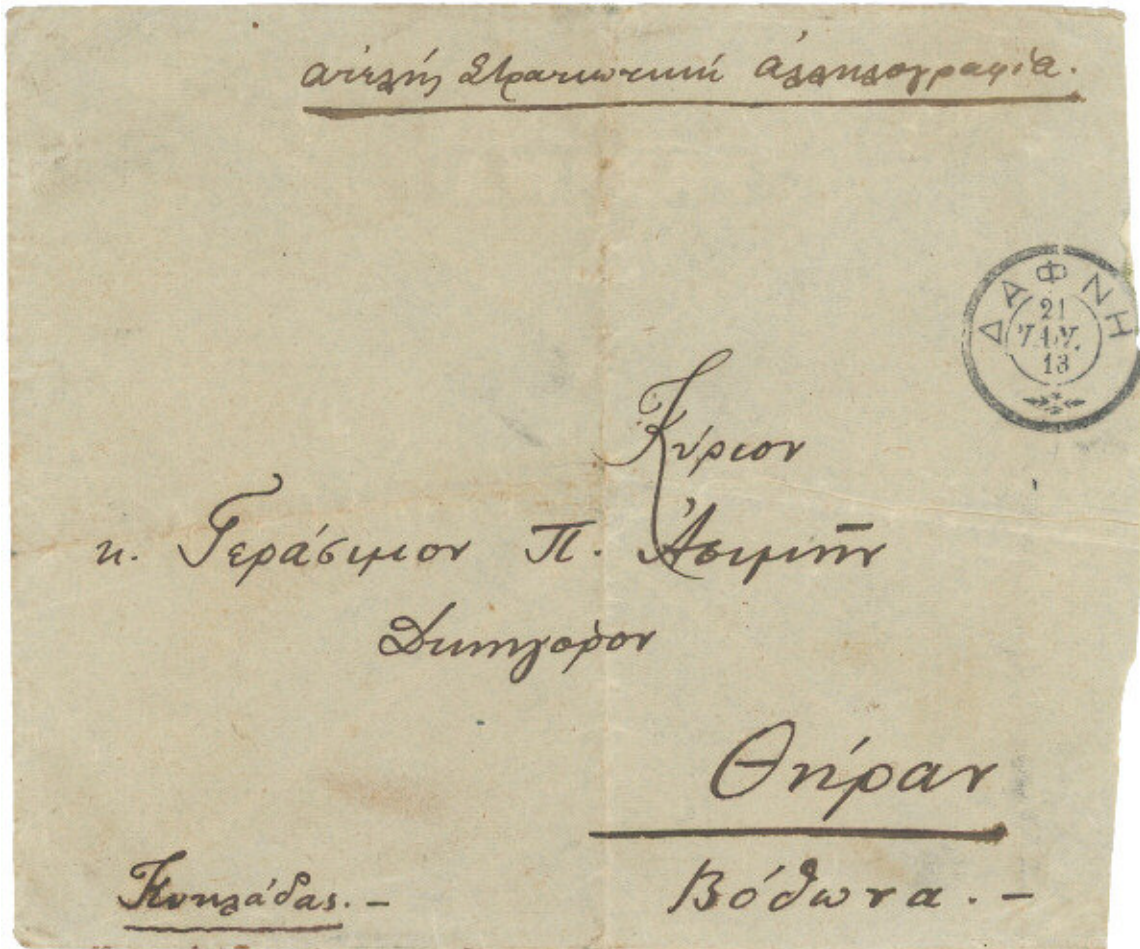 ἀτελής Στρατιωτική ἀλληλογραφία.
ΔΑΦΝΗ
21
ΙΑΝ.
13
Κύριον
κ. Γεράσιμον Π. Ἀσιμῆν
Δικηγόρον
Θήραν
Κυκλάδας. -
Βόθωνα. -